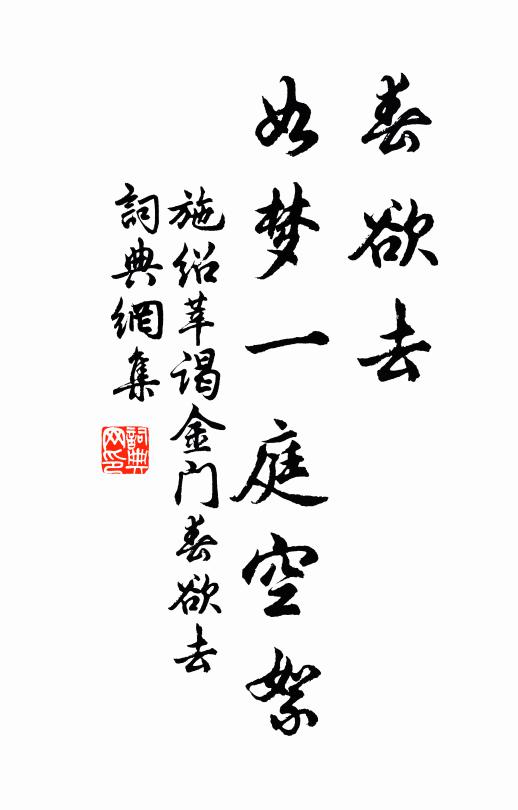 春欲去
如梦一庭空絮
施绍莘谒金门春欲去
詞典網集
詞典网印